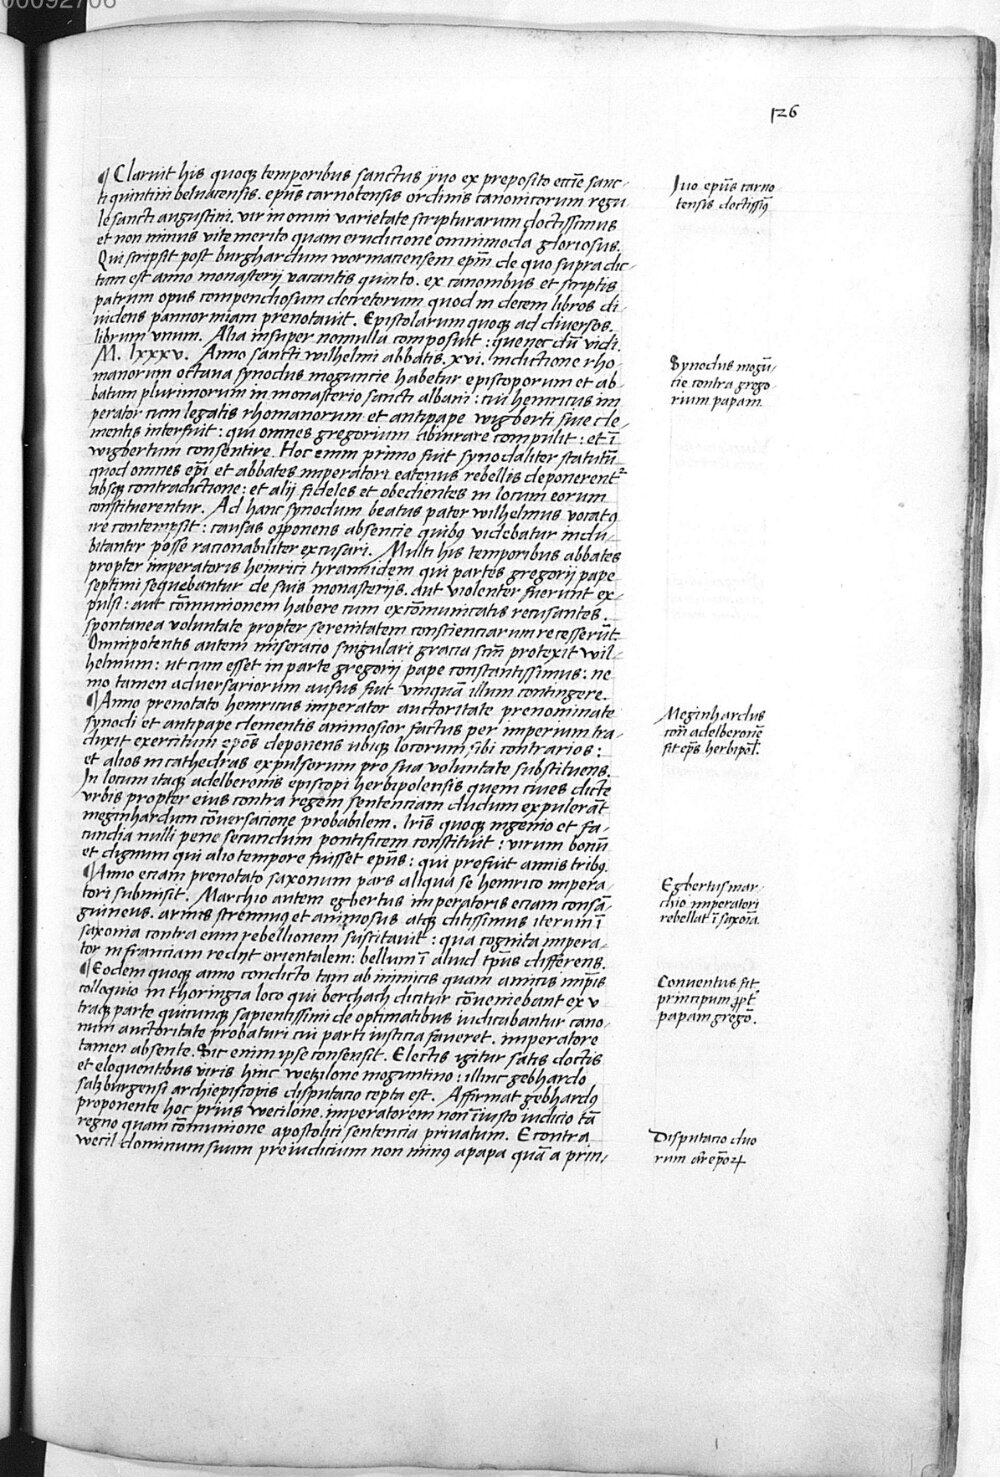 00092706
126
¶ Claruit his quoqꝫ temporibus sanctus yuo ex preposito eccīe sanc-
ti quintini beluacensis. ep̄us carnotensis ordinis canonicorum regu-
le sancti augustini. vir in omni varietate scripturarum doctissimus
et non minus vite merito quam erudicione omnimoda gloriosus.
Qui scripsit post burghardum wormaciensem ep̄m de quo supra dic-
tum est anno monasterij vacantis quinto. ex canonibus et scriptis
patrum opus compendiosum decretorum quod in decem libros di-
uidens pannormiam prenotauit. Epistolarum quoqꝫ ad diuersos.
librum vnum. Alia insuper nonnulla composuit: que nec dū vidi.
M. lxxxv. Anno sancti wilhelmi abbatis. xvi. indictione rho-
manorum octaua synodus moguncie habetur episcoporum et ab-
batum plurimorum in monasterio sancti albani: cui henricus im-
perator cum legatis rhomanorum et antipape wigberti siue cle-
mentis interfuit: qui omnes gregorium abiurare compulit: et ī
wigbertum consentire. Hoc enim primo fuit synodaliter statutū
quod omnes ep̄i et abbates imperatori eatenus rebellis deponerent᷑
absqꝫ contradictione: et alij fideles et obedientes in locum eorum
constituerentur. Ad hanc synodum beatus pater wilhelmus vocatꝰ
ire contempsit: causas opponens absencie quibꝰ videbatur indu-
bitanter posse racionabiliter excusari. Multi his temporibus abbates
propter imperatoris heinrici tyrannidem qui partes gregorij pape
septimi sequebantur de suis monasterijs. aut violenter fuerunt ex-
pulsi: aut cōmunionem habere cum excōmunicatis recusantes.
spontanea voluntate propter serenitatem conscienciarum recesserūt.
Omnipotentis autem miseracio singulari gracia scm̄ protexit wil-
helmum: ut cum esset in parte gregorij pape constantissimus: ne-
mo tamen aduersariorum ausus fuit vmquā illum contingere.
¶ Anno prenotato henricus imperator auctoritate prenominate
synodi et antipape clementis animosior factus per imperium tra-
duxit exercitum ep̄os deponens ubiqꝫ locorum sibi contrarios:
et alios in cathedras expulsorum pro sua voluntate substituens.
In locum itaqꝫ adelberonis episcopi herbipolensis quem ciues dicte
vrbis propter eius contra regem sentenciam dudum expulerāt
meginhardum cōuersacione probabilem. lrīs quoqꝫ ingenio et fa-
cundia nulli pene secundum pontificem constituit: virum bonū
et dignum qui alio tempore fuisset ep̄us: qui prefuit annis tribꝰ.
¶ Anno eciam prenotato saxonum pars aliqua se henrico impera-
tori submisit. Marchio autem egbertus imperatoris eciam consā-
guineus. armis strennuꝰ et animosus atqꝫ ditissimus iterum ī
saxonia contra eum rebellionem suscitauit: qua cognita impera-
tor in franciam redijt orientalem: bellum ī aliud tp̄us differens.
¶ Eodem quoqꝫ anno condicto tam ab inimicis quam amicis impīis
colloquio in thoringia loco qui berchach dicitur cōueniebant ex v-
traqꝫ parte quicunqꝫ sapientissimi de optimatibus iudicabantur cano-
num auctoritate probaturi cui parti iusticia faueret. imperatore
tamen absente. Sic enim ipse consensit. Electis igitur satis doctis
et eloquentibus viris hinc wetzilone moguntino: illinc gebhardo
salzburgensi archiepiscopis disputacio cepta est. Affirmat gebhardꝰ
proponente hoc prius wecilone. imperatorem non īiusto iudicio tā
regno quam cōmunione apostolici sentencia priuatum. E contra
wecil dominum suum preiudicium non minꝰ a papa quā a prin-
Iuo ep̄us carno-
tensis doctissimꝰ
Synodus mogū-
cie contra grego-
rium papam.
Meginhardus
con̄ adelberonē
fit ep̄s herbipol̄.
Egbertus mar-
chio imperatori
rebellat ī saxoīa.
Conuentus fit
principum ꝓpt̄
papam gregō.
Disputacio duo-
rum archiep̄oꝝ